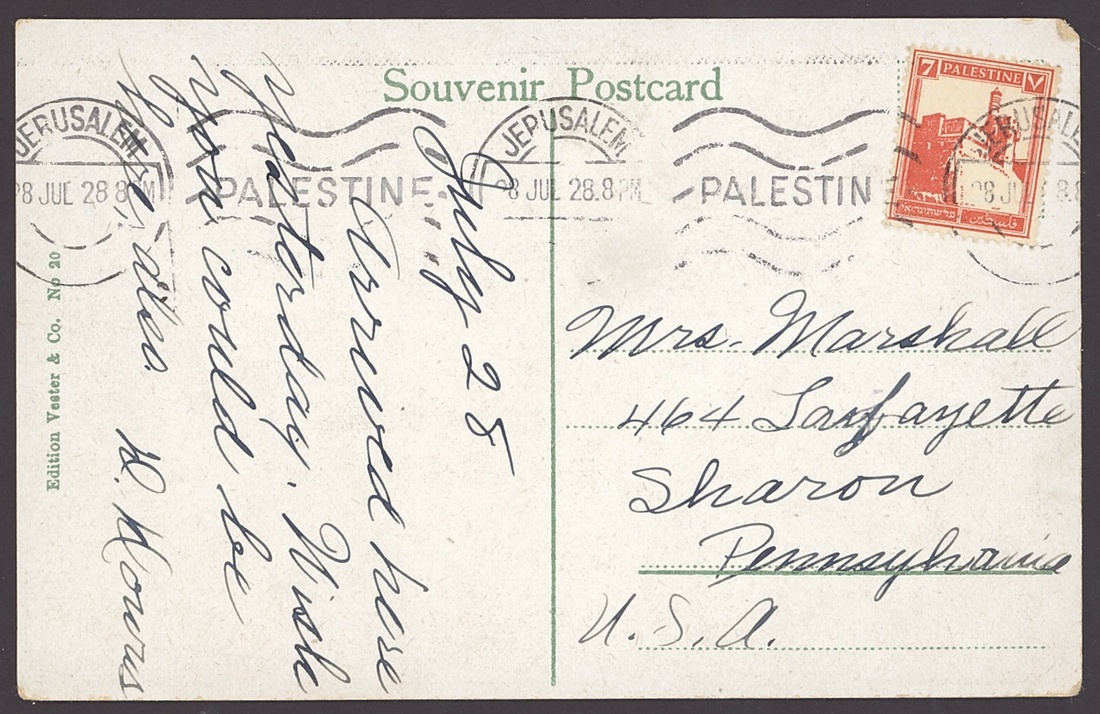 Souvenir Postcard
7 PALESTINE ٧
فلسطين
JERUSALEM
28 JUL 28.8 PM
PALESTINE
JERUSALEM
28 JUL 28.8 PM
PALESTINE
JERUSALEM
28 JUL 28.8
July 28
Arrived here
yesterday. Wish
you could be
here, also.
Mrs. Marshall
464 Lafayette
Sharon
Pennsylvania
U. S. A.
Edition Vester & Co. No 20